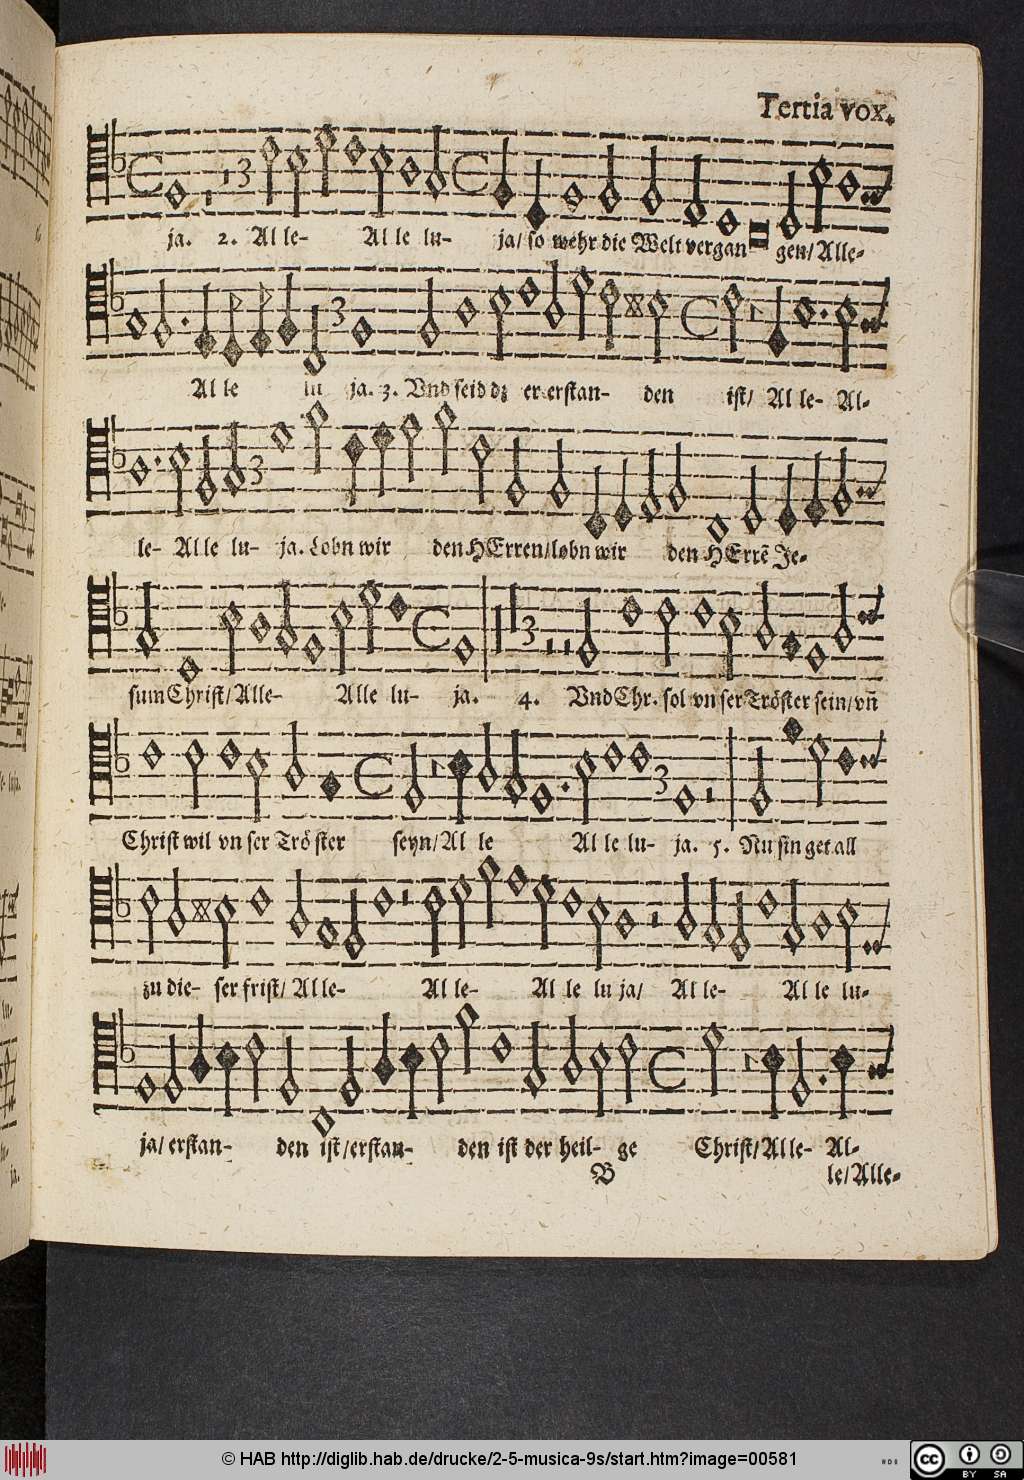 Tertia vox.
ja. 2. Al le- Al le lu- ja/ so wehr die Welt vergan gen/ Alle-
Al le lu ja. 3. Vnd seid dz er erstan- den ist/ Al le- Al-
le- Al le lu- ja. Lobn wir den HErren/ lobn wir den HErrẽ Je-
sum Christ/ Alle- Alle lu- ja. 4. Vnd Chr. sol vn ser Tröster sein/ vñ
Christ wil vn ser Trö ster seyn/ Al le Al le lu- ja. 5. Nu sin get all
zu die- ser frist/ Al le- Al le- Al le lu ja/ Al le- Al le lu-
ja/ erstan- den ist/ erstan- den ist der heil- ge Christ/ Al le- Al-
B le/ Alle-
© HAB http://diglib.hab.de/drucke/2-5-musica-9s/start.htm?image=00581
cc BY SA